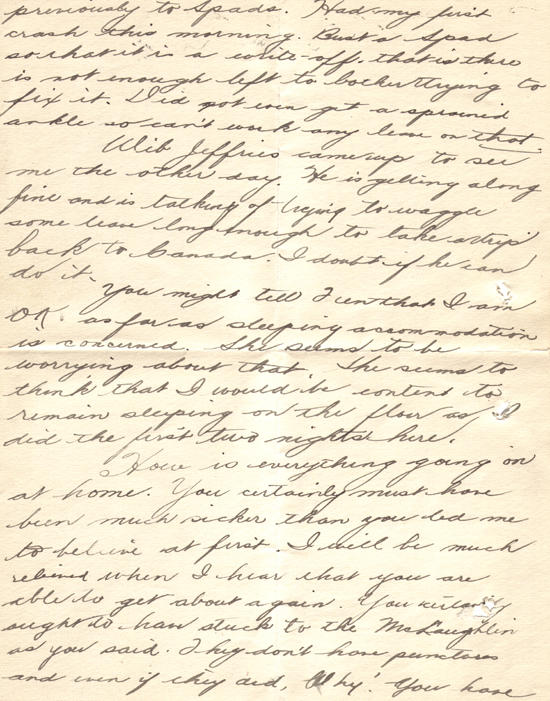 previously to Spads. Had my first
crash this morning. Bust a Spad
so that it is a write-off. that is there
is not enough left to bother trying to
fix it. Did not even get a sprained
ankle so can't work any leave on that.
Wib Jeffries came up to see
me the other day. He is getting along
fine and is talking of trying to waggle
some leave long enough to take a trip
back to Canada. I doubt if he can
do it.
You might tell that I am
OK as far as sleeping accommodation
is concerned. She seems to be
worrying about that. She seems to
think that I would be content to
remain sleeping on the floor as I
did the first two nights here.
How is everything going on
at home. You certainly must have
been much sicker than you led me
to believe at first. I will be much
relieved when I hear that you are
able to get about again. You certainly
ought to have stuck to the McLaughlin
as you said. They don't have punctures
and even if they did, Why! You have